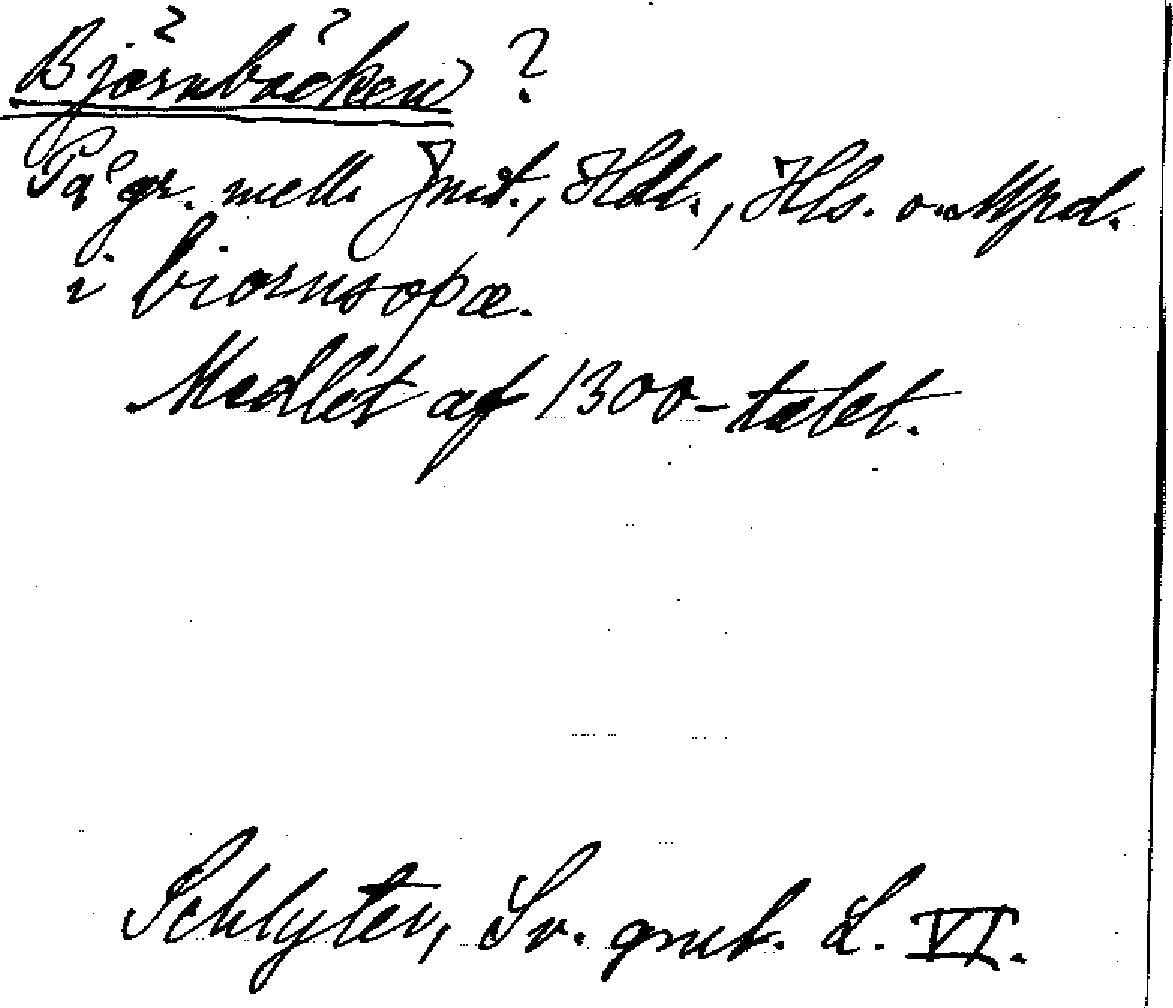 Björnbäcken ?
På gr. mell. Jmt., Hdl., Hls. o. Mpd.
i biornsopæ.
Medlet af 1300-talet.
Schlyter, Sv. gml. L. VI.